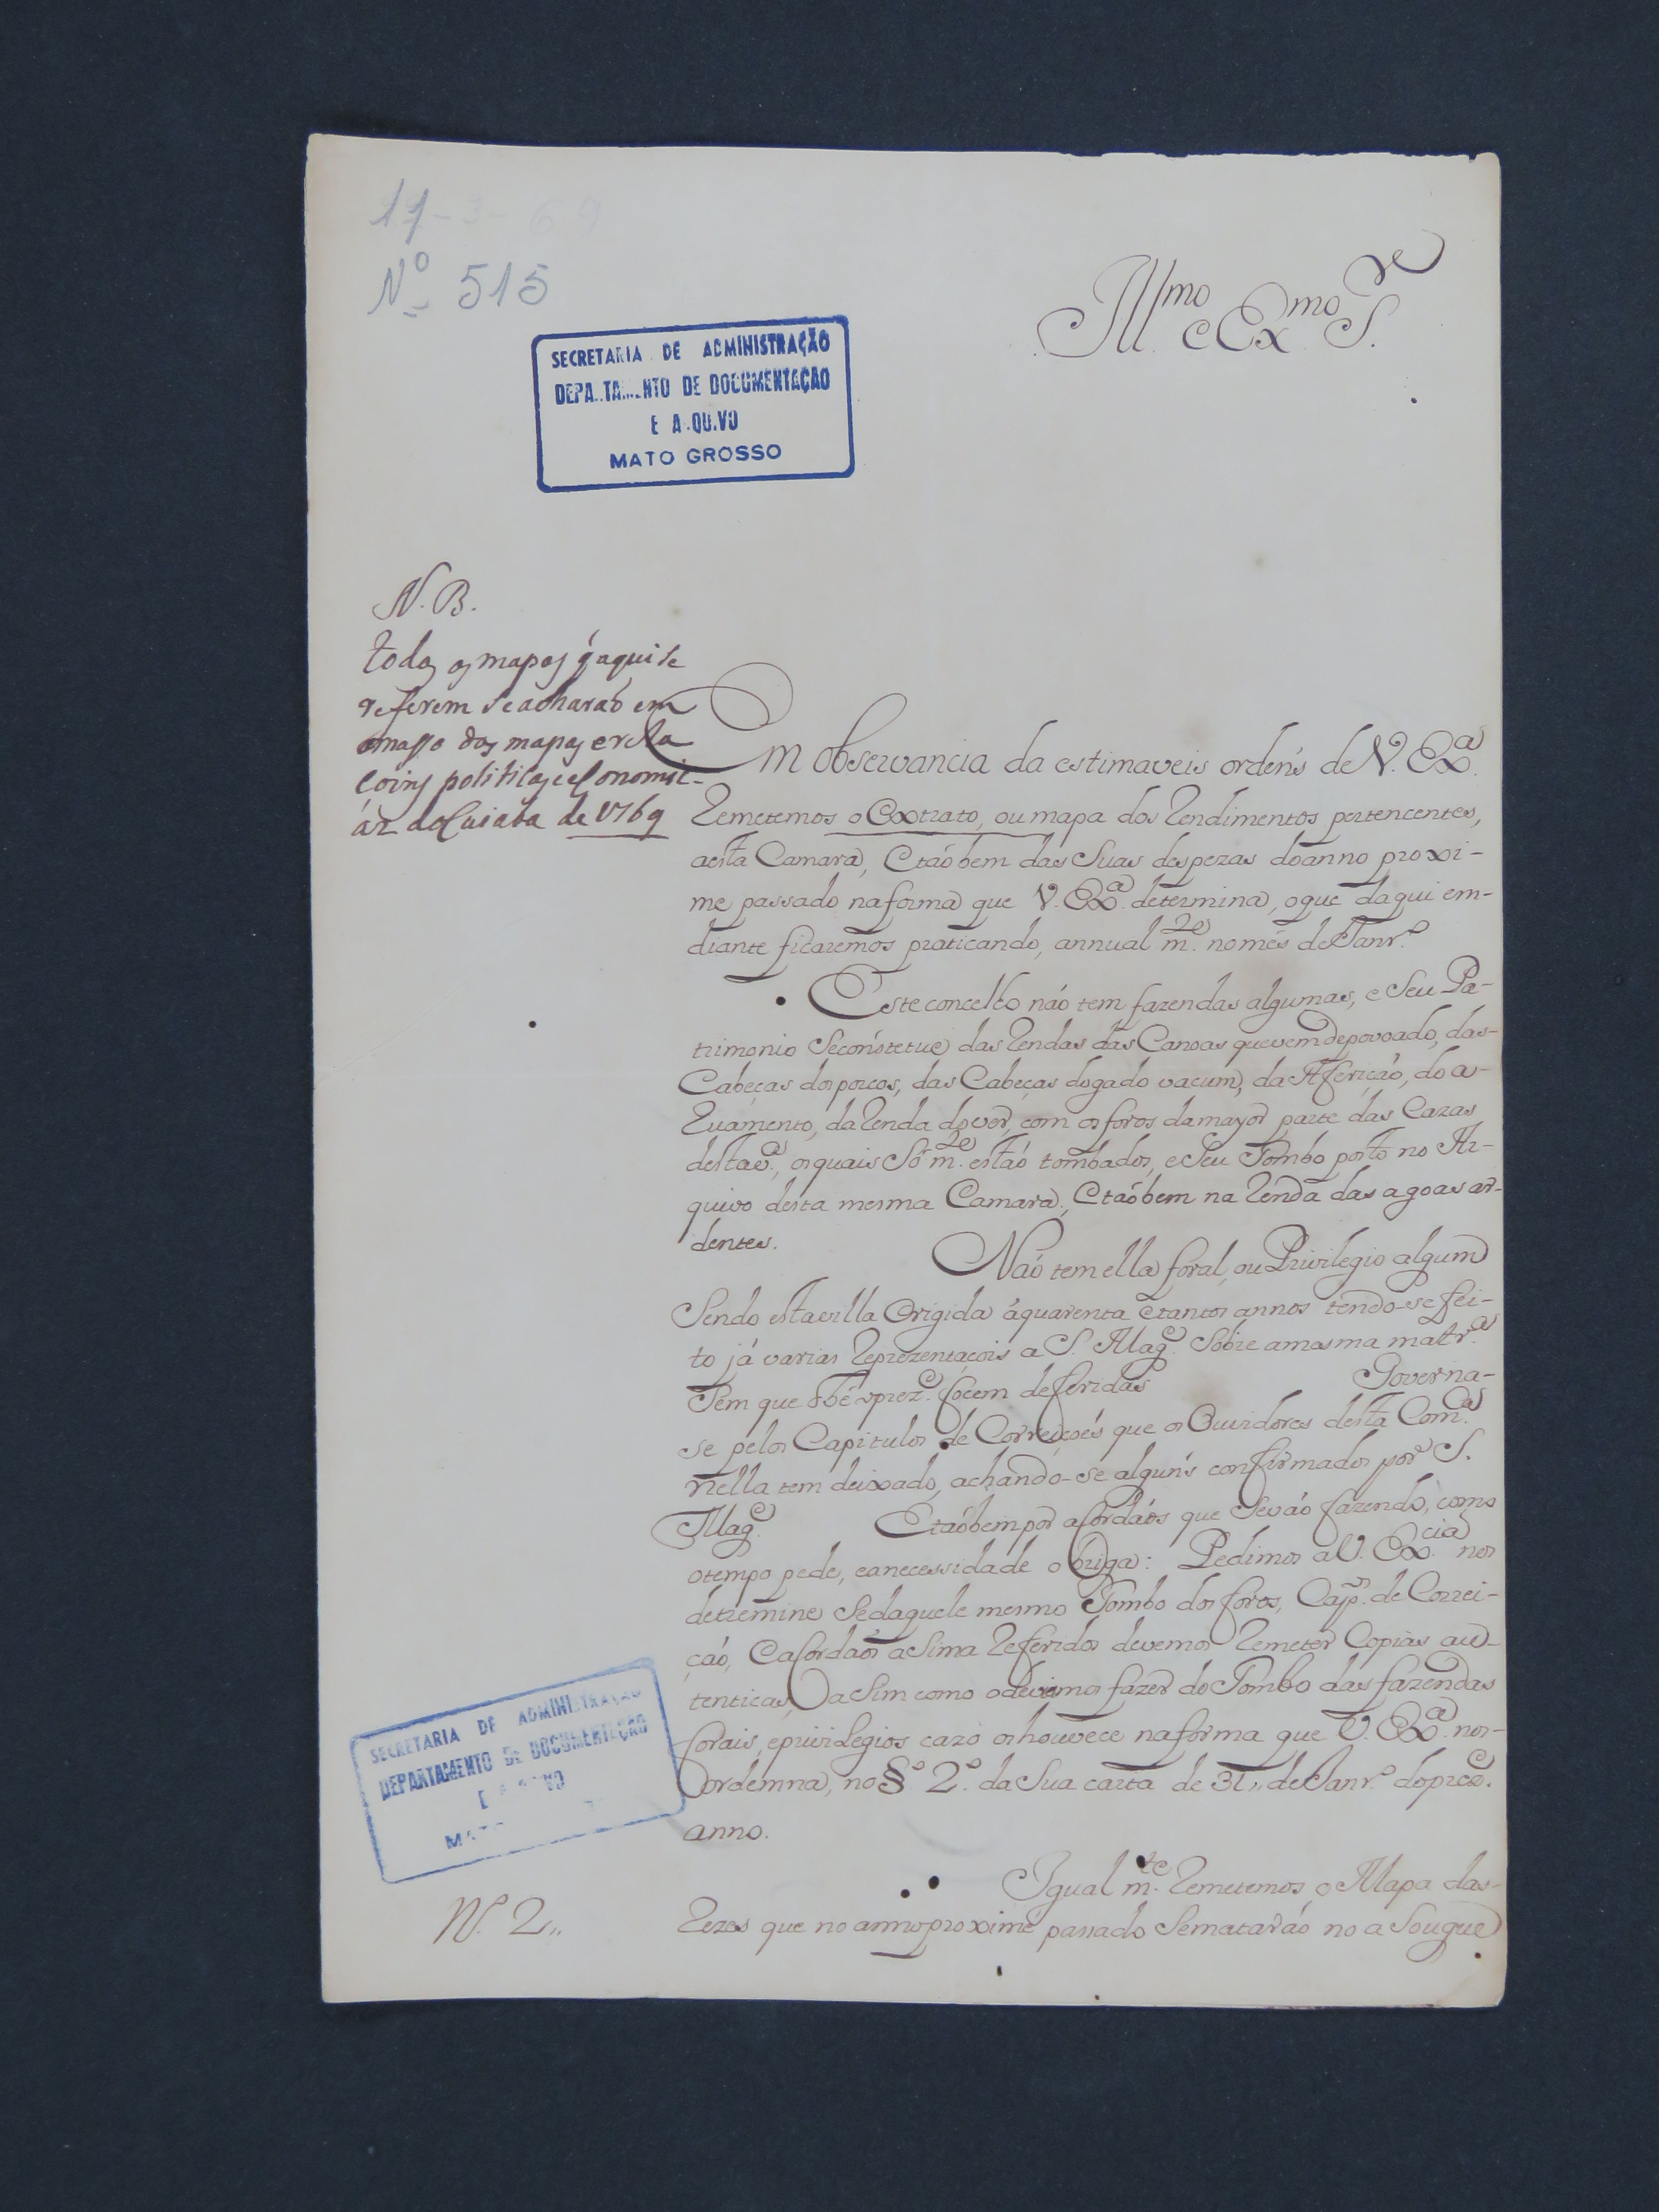 17-3-69
Nº 515
Ill.mo e Ex.mo S.r
SECRETARIA DE ADMINISTRAÇÃO
DEPA..TA...NTO DE DOCUMENTAÇÃO
E A.QU.VO
MATO GROSSO
N. B.
todos os mapas q́ aqui se
referem se acharaõ em
o masso dos mapas e rela
coins politicas e economic-
as do Cuiaba de 1769
Em observancia da estimaveis ordeńs de V. Ex.a
Remetemos o Extrato, ou mapa dos Rendimentos pertencentes,
aesta Camara, Etaóbem das Suas despezas doanno proxi-
me passado naforma que V. Ex.a determina, oque daqui em-
diante ficaremos praticando, annual m.te només deJanr.o
Este concelho náo tem fazendas algumas, e Seu Pa-
trimonio Secoństetue das Rendas das Canoas quevemdepovoado, das-
Cabeças dos porcos, das Cabeças dogado vacum, da Afericáo, do a-
Ruamento, da Renda dover, com os foros damayor parte das Cazas
destav.a, osquais Só m.te estáo tombados, eSeu Tombo posto no Ar-
quivo desta mesma Camara, Etaóbem na Renda das agoas ar-
dentes.
Náo temella foral, ou Privilegio algum
Sendo estavilla Erigida áquarenta etantos annos tendo-se fei-
to já varias Reprezentaçois a S. Mag.e Sobre amasma matr.a
Sem que thé oprez.e focem deferidas
Governa-
se pelos Capitulos de Correiçoés que os Ouvidores desta Com.a
nella tem deixado, achando-se alguńs confirmados por S.
Mag.e Etaóbem por acordaós que Seváo fazendo, como
otempo pede, eanecessidade obriga: Pedimos aV. Ex.cia nos
detremine Sedaquele mesmo Tombo dos foros, Cap.os de Correi-
çáo, Eacordaós aSima Referidos devemos Remeter Copias au-
tenticas, aSim como odeviamos fazer do Tombo das fazendas
forais, eprivilegios cazo oshouvece naforma que V. Ex.a nos-
ordemna, no §.o 2.o da Sua carta de 31,, de Janr.o doprez.e
anno.
SECRETARIA DE ADMINISTRAÇÃO
DEPARTAMENTO DE DOCUMENTAÇÃO
E A..VO
MAT
Igual m.te Remetemos o Mapa das-
N.o 2,,
Rezes que no annoproxime passado Sematáráo no aSougue